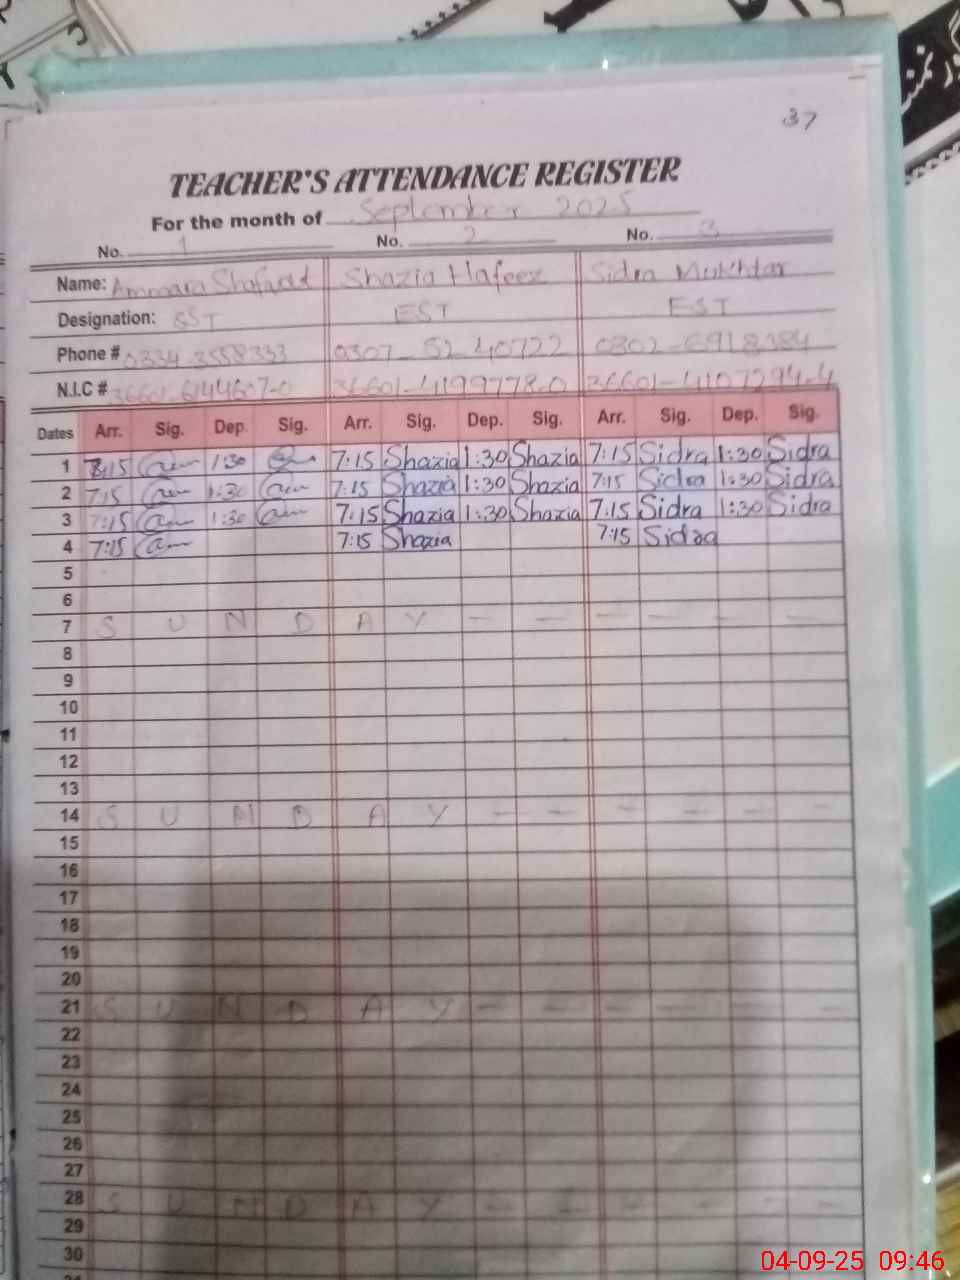 37
TEACHER'S ATTENDANCE REGISTER
For the month of September 2025
No. 1 No. 2 No. 3
Name: Ammara Shafaqat Shazia Hafeez Sidra Mukhtar
Designation: SST EST EST
Phone # 0334-3558333 0307-5240722 0302-6918384
N.I.C # 36601-6144607-0 36601-4199778-0 36601-4107294-4
Dates Arr. Sig. Dep. Sig. Arr. Sig. Dep. Sig. Arr. Sig. Dep. Sig.
1 7:15 1:30 7:15 Shazia 1:30 Shazia 7:15 Sidra 1:30 Sidra
2 7:15 1:30 7:15 Shazia 1:30 Shazia 7:15 Sidra 1:30 Sidra
3 7:15 1:30 7:15 Shazia 1:30 Shazia 7:15 Sidra 1:30 Sidra
4 7:15 7:15 Shazia 7:15 Sidra
5
6
7 S U N D A Y - - - - - -
8
9
10
11
12
13
14 S U N D A Y - - - - - -
15
16
17
18
19
20
21 S U N D A Y - - - - - -
22
23
24
25
26
27
28 S U N D A Y - - - - - -
29
30
04-09-25 09:46